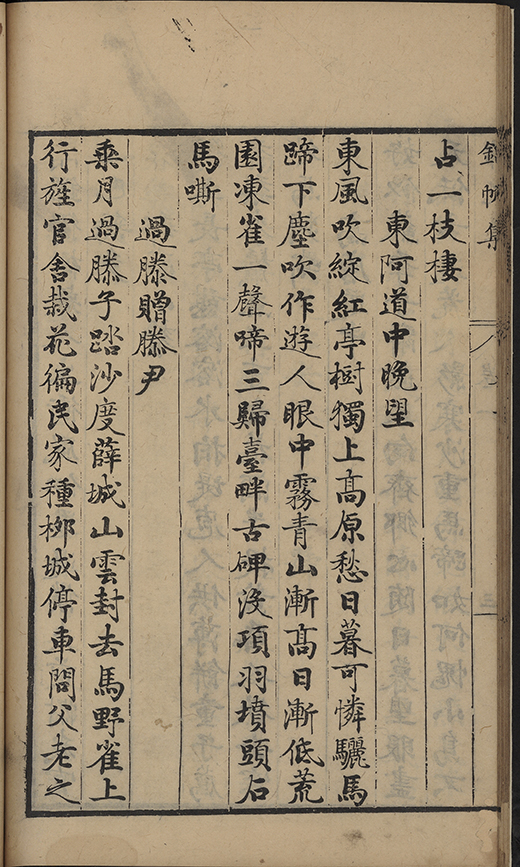 錦帆集
占一枝棲
東阿道中晚望
東風吹綻紅亭樹獨上高原愁日暮可憐驪馬
蹄下塵吹作遊人眼中霧青山漸高日漸低荒
園凍雀一聲啼三歸臺畔古碑沒項羽墳頭石
馬嘶
過滕贈滕尹
乘月過滕子踏沙度薛城山雲封去馬野雀上
行旌官舍栽花徧民家種柳城停車問父老之